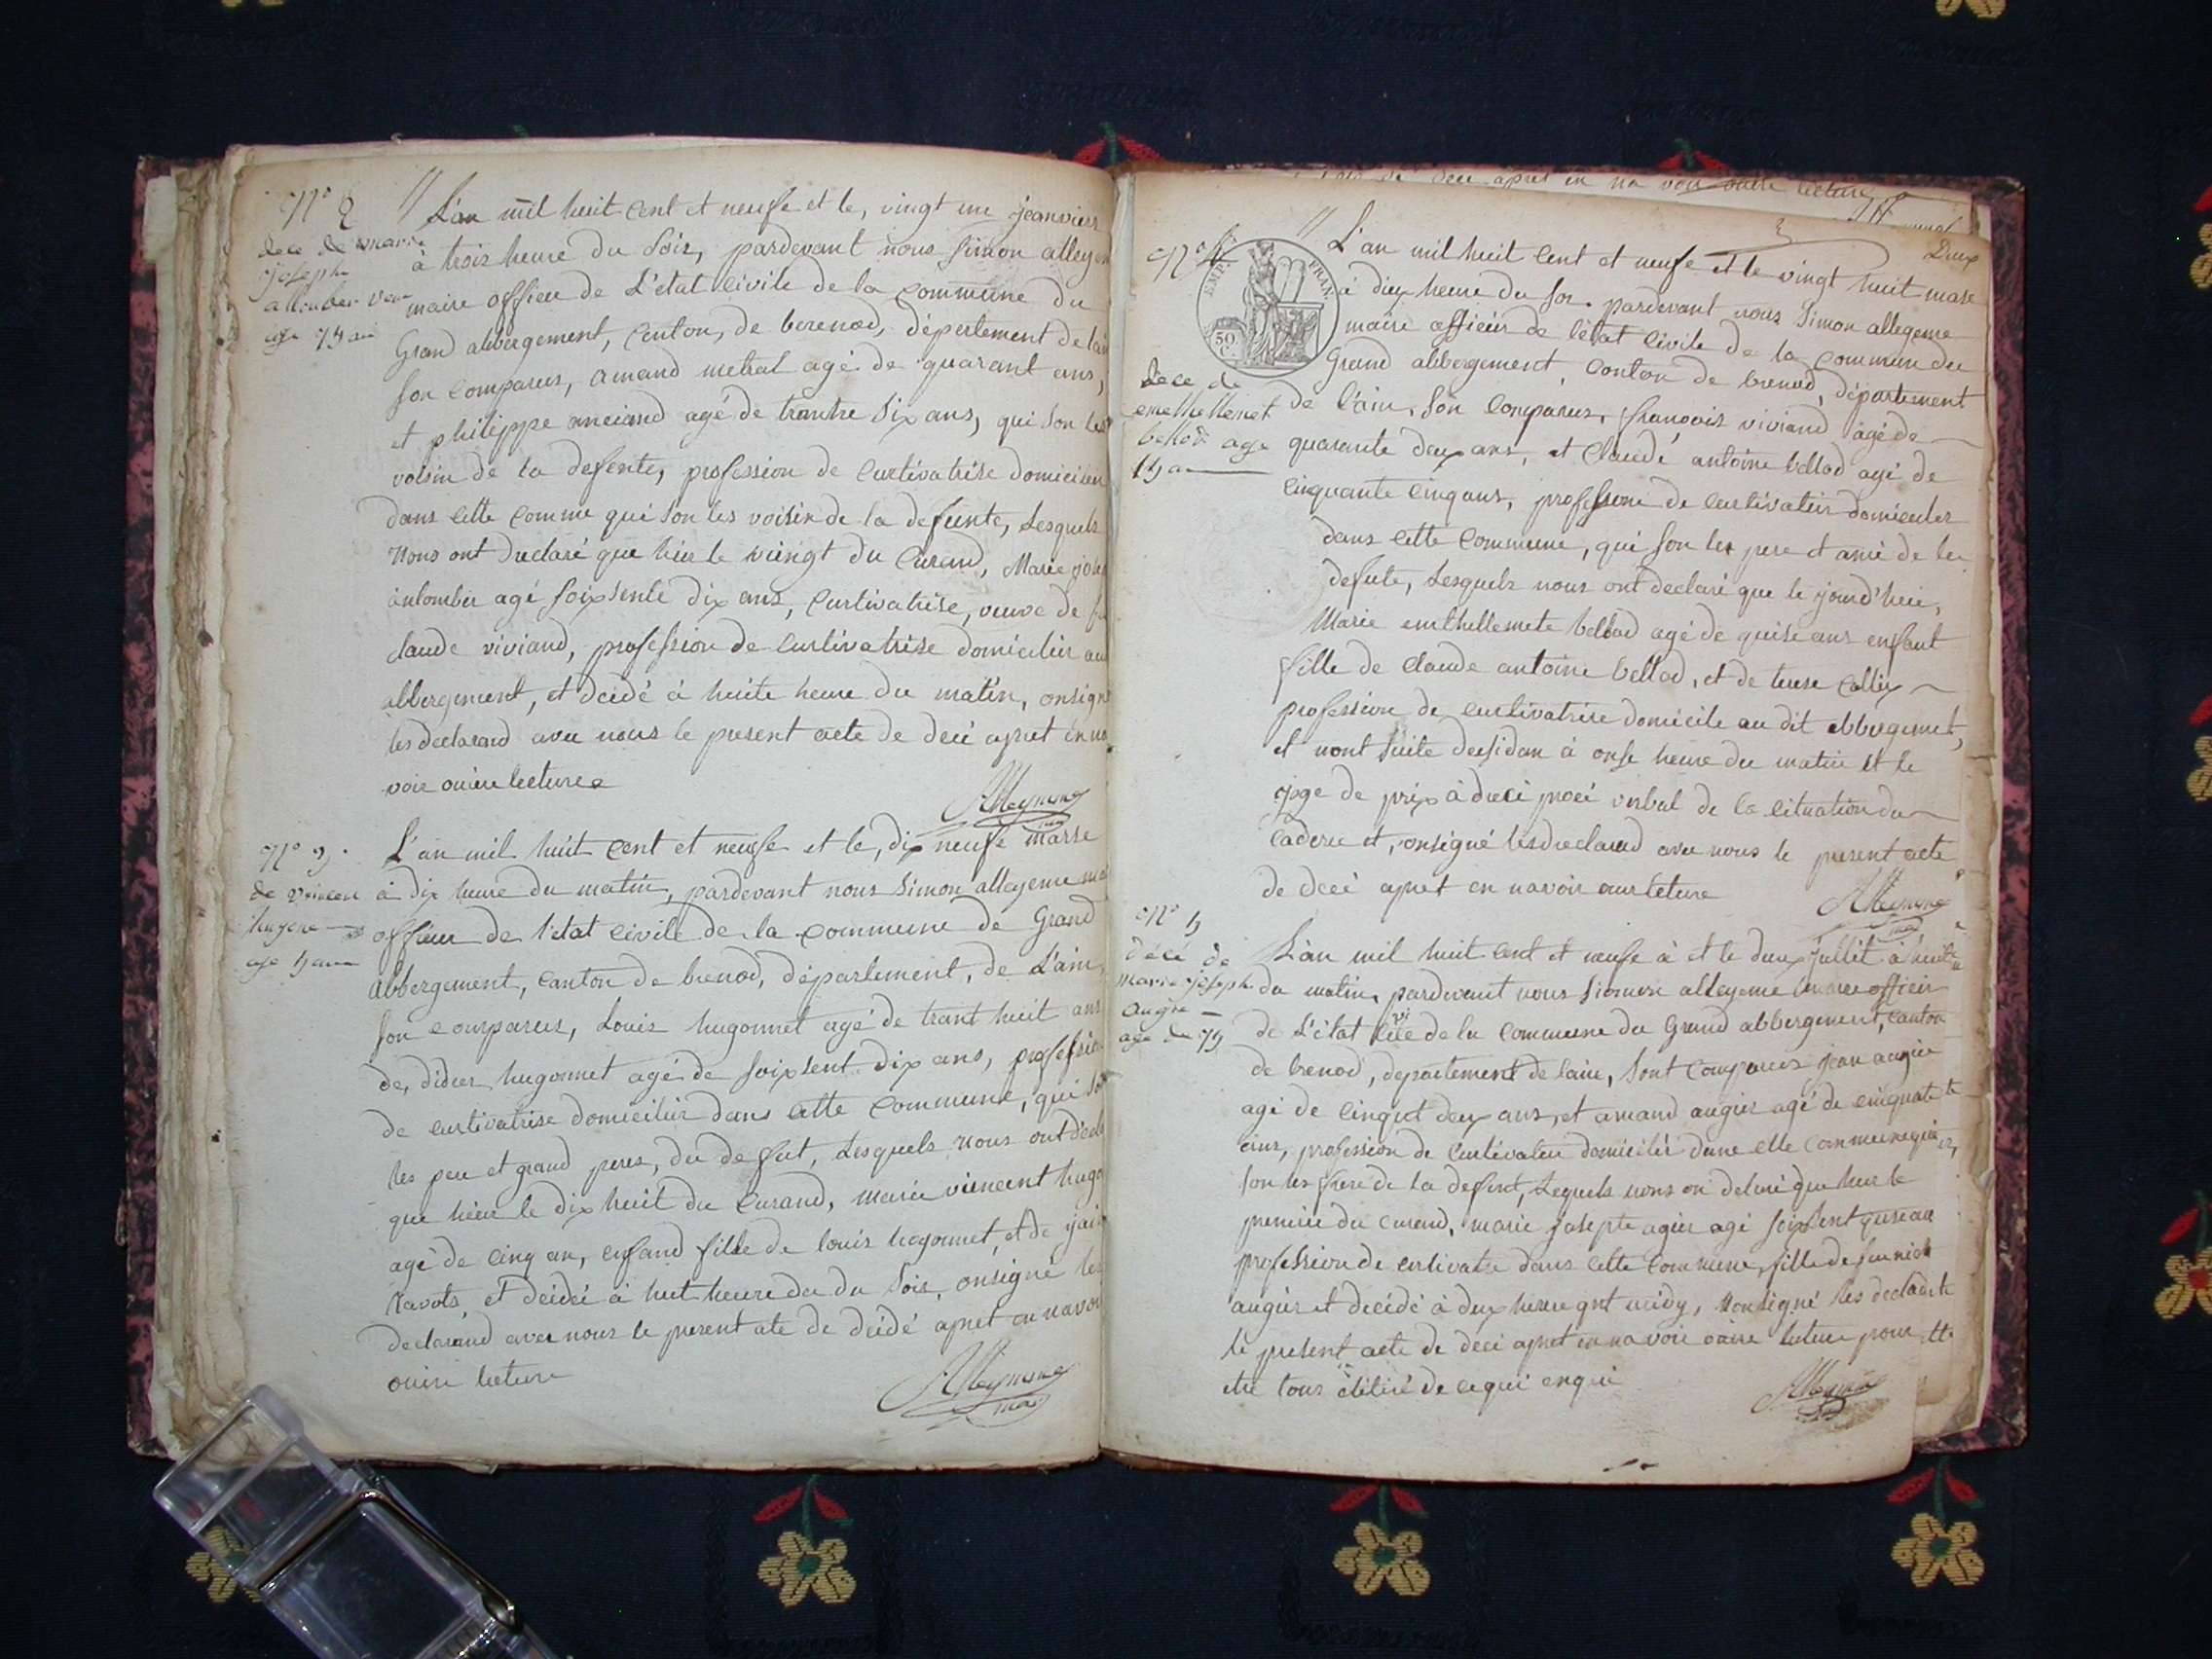 N° 2
dece de marie
joseph
age 75 an
L'an mil huit cent et neufe et le, vingt un jeanvier
à trois heure du soir, pardevant nous Simon alleyem
maire officu de L'etat civile de la commune du
Grand abbergement, Canton, de berenod, département de lain
son comparus, amand metral agé de quarant ans,
et philippe anciand agé de trantre six ans, qui son les
voisin de la defente, profession de curtivatrise domicilier
dans cette comme qui son les voisin de la defunte, Lesquels
Nous ont declaré que hier le vingt du curand, Marie jose
agé soixsente dix ans, curtivatrise, veuve de
claude viviand, profession de curtivatrise domicilier au
abbergement, et decidé à huite heure du matin, onsigné
les declarand avec nous le present acte de decé apret en na
voir ouire lecture
Alleymene
N° 3
de vincen
hugone
age 5 ans
L'an mil huit cent et neufe et le, dix neufe marse
à dix heure du matin, pardevant nous Simon alleyeme mai
officier de l'etat civile de la commune de Grand
abbergement, canton de brenod, département, de L'ain,
son comparus, Louis hugonnet agé de trant huit ans
de, didier hugonnet agé de soixsent dix ans, profession
de curtivatrise domicilier dans cette commune, qui son
les pere et grand peres, du defut, Lesquels Nous ont decla
que hier le dix huit du Curand, marie viencent hugo
agé de cinq an, enfand fille de louis hugonnet, et de
Ravots, et décidé à huit heure du du soir, onsigné les
declarand avec nous le present ate de décédé apret en navoir
ouire lecture
Alleymene
mai
de decé apret en na voir ouire lecture
Deux
N° 4
EMP. FRAN.
50
C.
dece de
emethellemet
bellod age
15 a
L'an mil huit Cent et neufe et le vingt huit mars
à dix heure du soi. pardevant nous Simon allegeme
maire officier de l'état civile de la commun du
Grand abbergement, conton de brenod, département
de l'ain, son comparus, francois viviand agé de
quarante deux ans, et Claude antoine bellod agé de
cinquante cinq ans, profession de curtivatier domicilier
dans cette Commune, qui son les pere et ami de la
defute, Lesquels nous ont declaré que le jourd'huie,
Marie emthellemete bellod agé de quise ans enfant
fille de claude antoine bellod, et de terese Collix
profession de curtivatrise domicile au dit abbergemet,
et mont suite desidan à onse heure du matin et le
joge de prix à dreci proci verbal de la cituation du
Cadevre et, onsigné lesdeclarand avec nous le present acte
de decé apret en navoir ouire leture
Alleymene
mai
N° 5
décé de
marie joseph
augie
age de 75
L'an mil huit cent et neufe à et le deux jullit à huite
du matin, pardevant nous Siomon alleyeme maire officier
de L'état civile de la commune du Grand abbergement, canton
de brenod, departement de lain, sont comparus jean augier
agé de cinqut deux ans, et amand augier agé de cinquate
ans, profession de Curtivateu domicilér dans ette commune qui
son les frere de la defunt, Lequels nous on delaré que hier le
premier du curand, marie josepte agier agé soixsent quise an
profession de curtivatse dans cette commune, fille de feu
augier et decédé à deux heure qut midy, Nonsigné les declarte
le present acte de decé apret en na voir ouire leture pour ette
etre tous
Alleymene